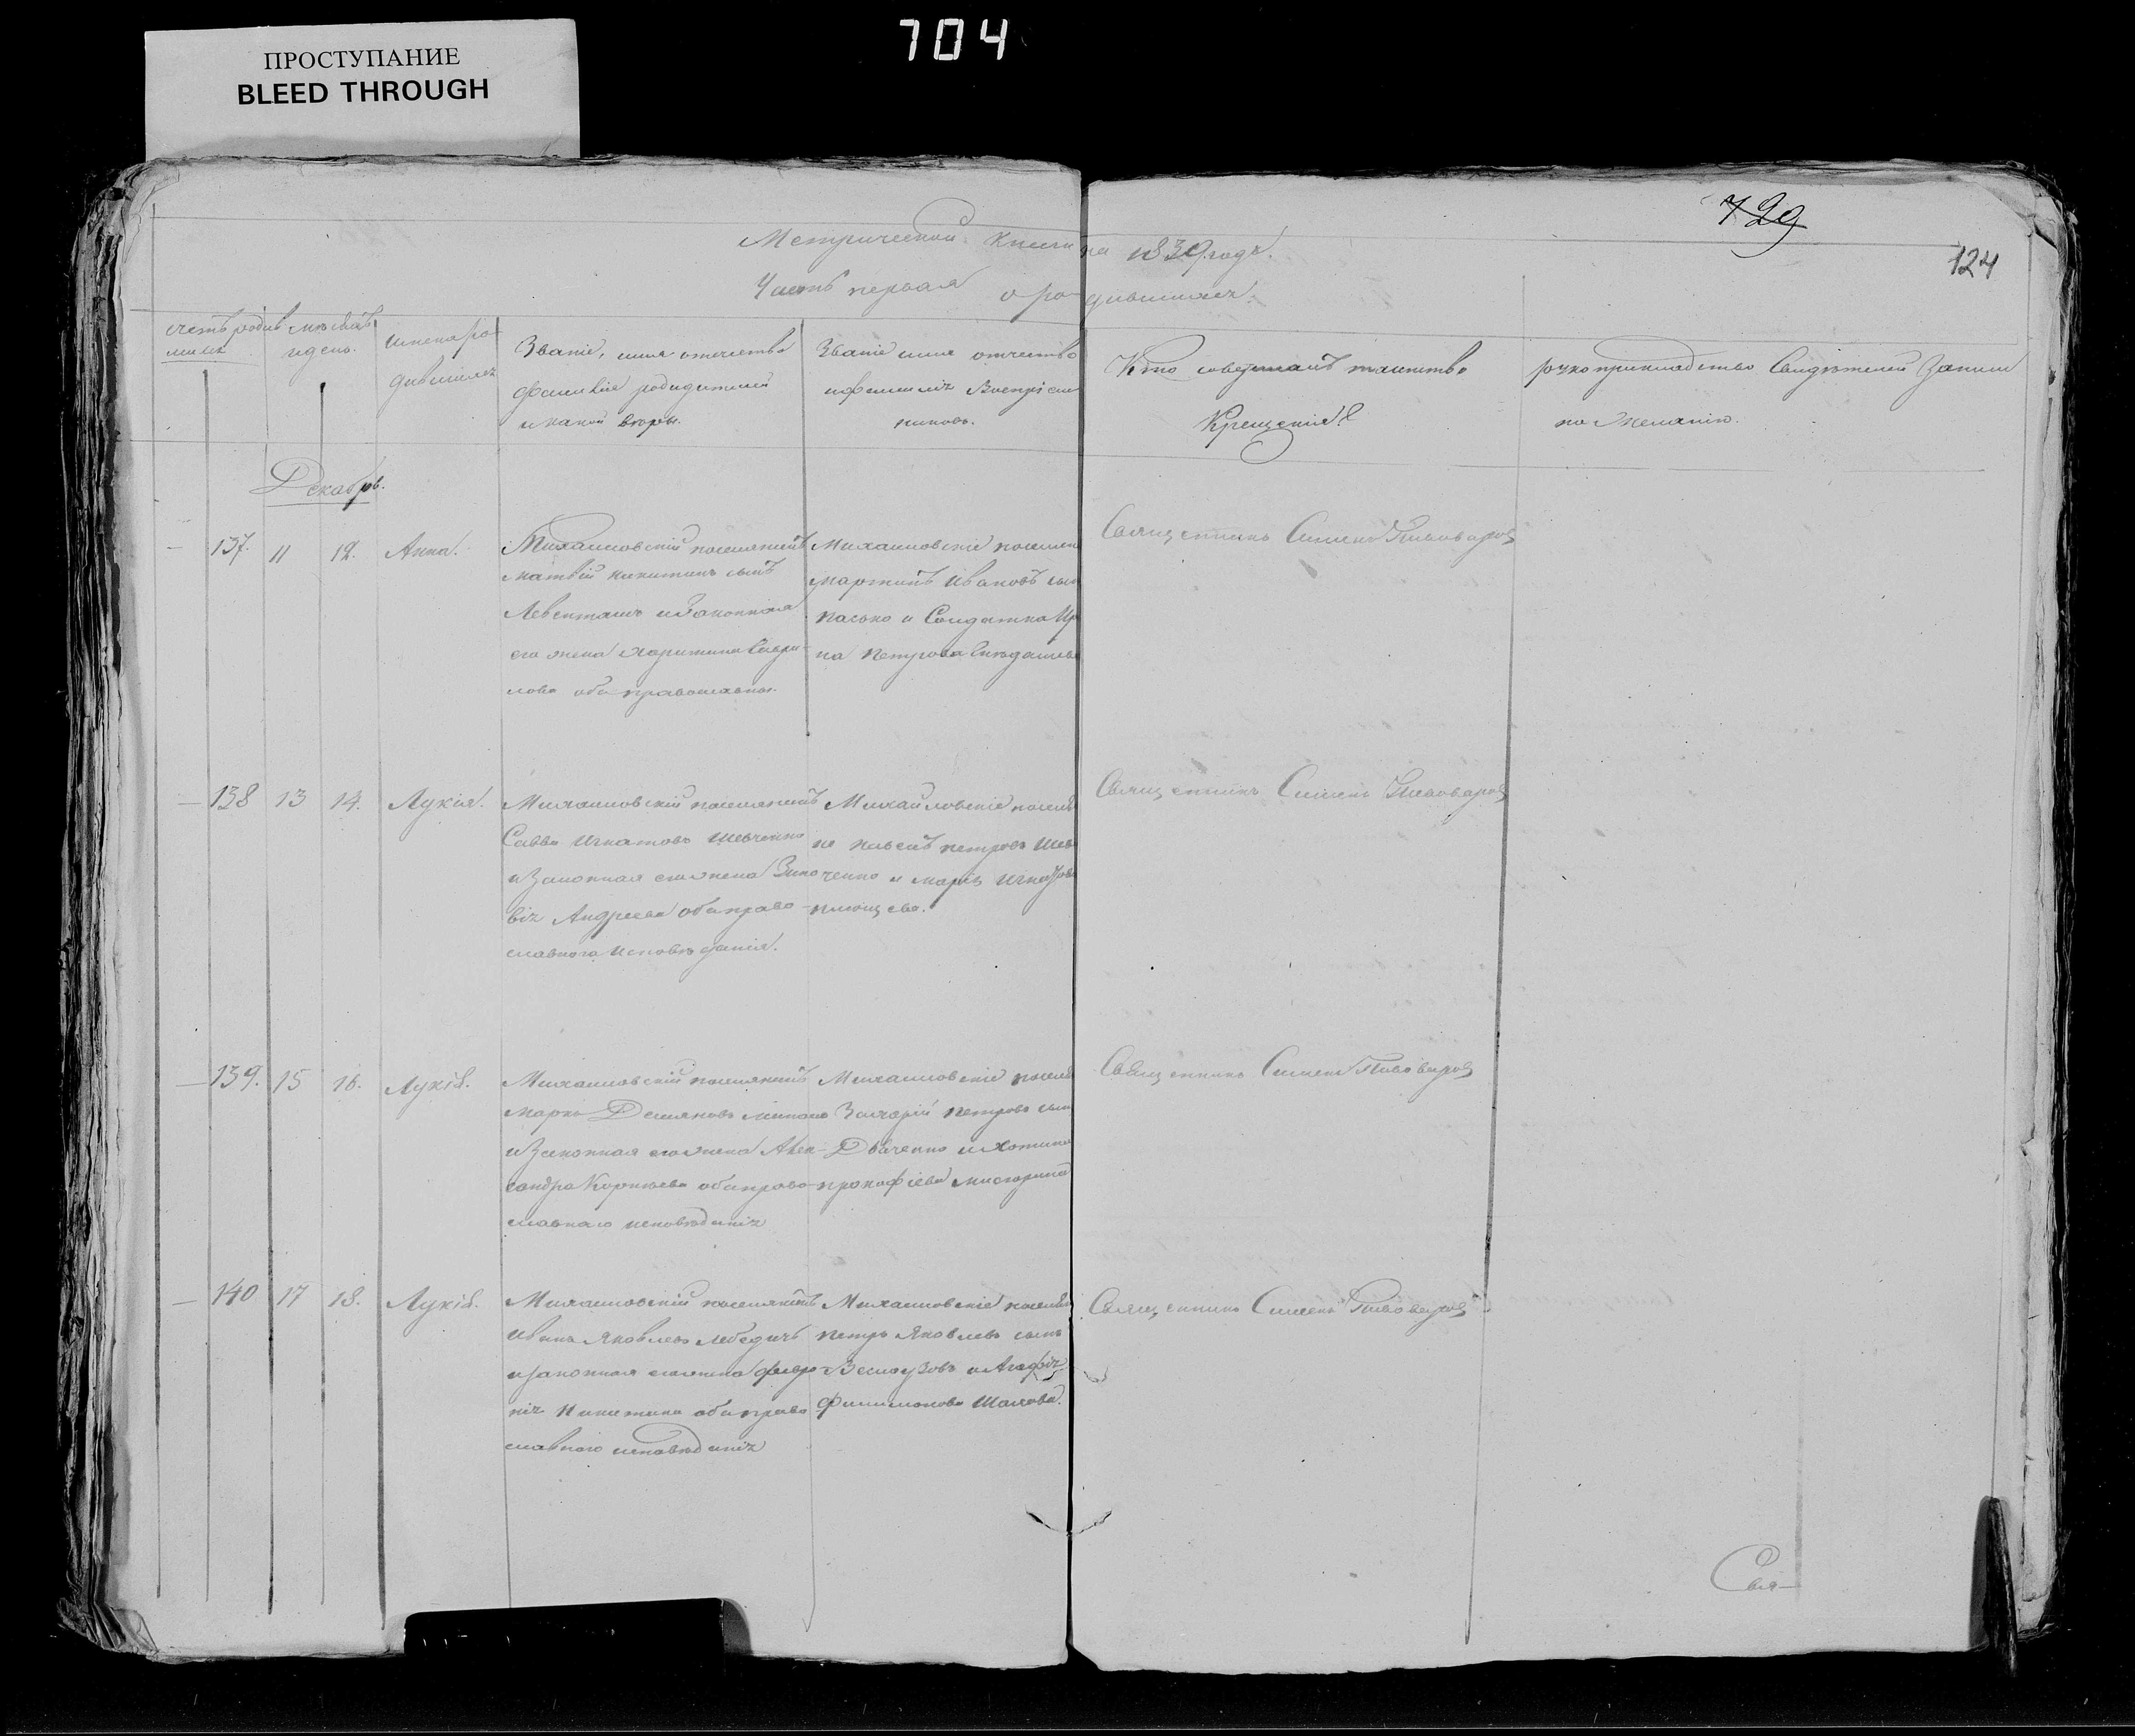 704
ПРОСТУПАНИЕ
BLEED THROUGH
729
124
Метрической книги на 1839 годъ.
Часть первая о родившихся.
счетъ родив мѣсяцъ
шихся
и день.
имена ро
дившихся
Званіе, имя отчество
фамилія родителей
и какой вѣры.
Званіе имя отчество
и фамилія Воспріем
никовъ.
Кто совершалъ таинство
Крещенія
рукоприкладство Свидѣтелей записи
по желанію.
Декабрь.
137. 11 12. Анна.
Михаиловскій поселянинъ
матвій никитинъ сынъ
и Законная
его жена харитина Гаври
лова оба православны.
Михаиловскіе поселян
мартинъ Ивановъ сын
пасько и Солдатка Ир
на Петрова
Священникъ Симеонъ Пивоваровъ
138 13 14. Лукія.
Михаиловскій поселянинъ
Савва Игнатовъ Шевченко
и Законная его жена Зино
вія Андреева оба право
славного исповѣданія.
Михайловскіе поселя
не павелъ петровъ Шев
ченко и марія Игнатова
Священникъ Симеонъ Пивоваровъ
139. 15 16. Лукія.
Михаиловскій поселянинъ
марко Демяновъ
и Законная его жена Алек
сандра Корнѣева оба право
славнаго исповѣданія
Михаиловскіе поселя
Захарій петровъ сын
Дяченко и хотина
прокофіева
Священникъ Симеонъ Пивоваровъ
140 17 18. Лукія.
Михаиловскій поселянинъ
Иванъ Яковлевъ лебедичъ
и законная его жена февро
нія Никитина оба право
славного исповѣданія
Михаиловскіе поселян
петръ Яковлевъ сынъ
и Агафія
филимонова
Священникъ Симеонъ Пивоваровъ
Свя-